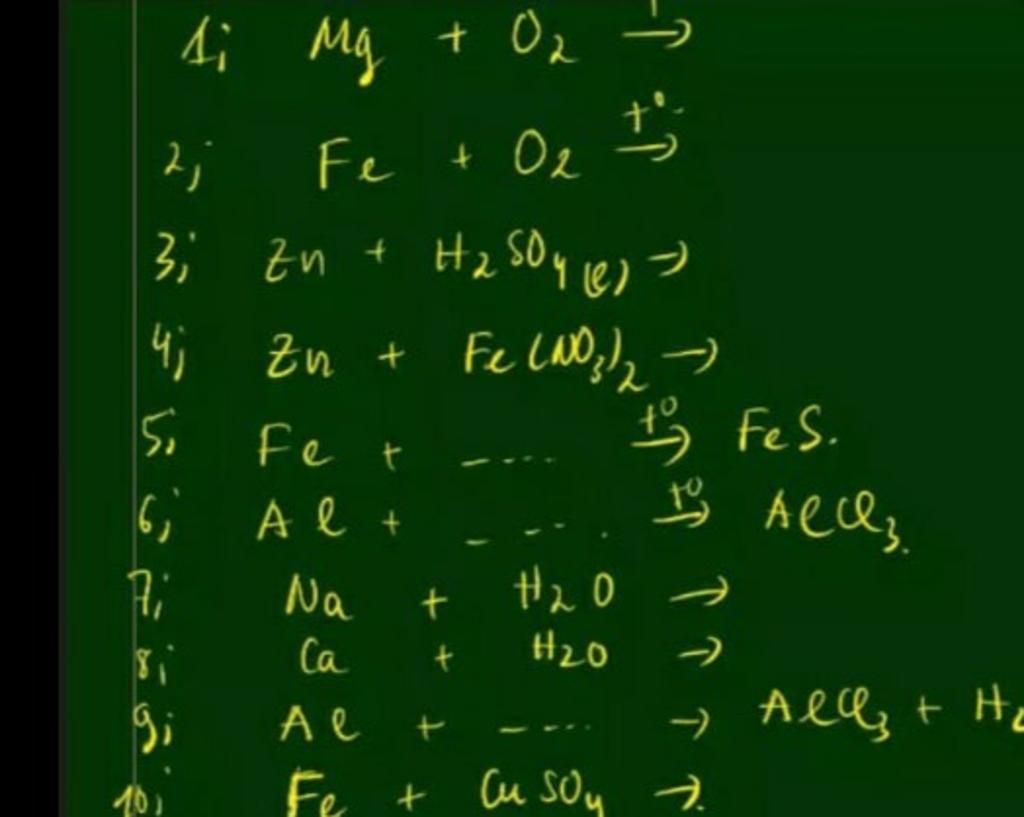 1; Mg + O2 →
2; Fe + O2 t° →
3; Zn + H2SO4(l) →
4; Zn + Fe(NO3)2 →
5; Fe + .... t° → FeS.
6; Al + .... t° → AlCl3.
7; Na + H2O →
8; Ca + H2O →
9; Al + .... → AlCl3 + H2
10; Fe + CuSO4 →